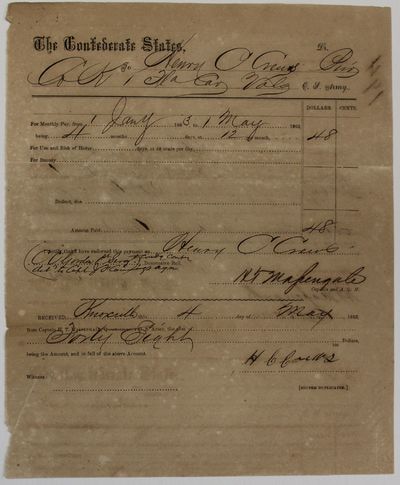 The Confederate States, Dr.
To Henry C Crews Priv
Co K 1 Fla Cav Vols C. S. Army.
DOLLARS. CENTS.
For Monthly Pay, from 1 Jany 1863, to 1 May 1863,
being 4 months days, at 12 month, 48
For Use and Risk of Horse, days, at 40 cents per day,
For Bounty,
Deduct, due
Amount Paid, 48
I certify that I have endorsed this payment on Henry C Crews
Descriptive Roll.
H T Massengale
Captain and A. Q. M.
RECEIVED, Knoxville this 4 day of May 1863,
from Captain H. T. MASSENGALE,
Forty Eight Dollars,
being the Amount, and in full of the above Account.
H C Crews
Witness
[SIGNED DUPLICATES.]